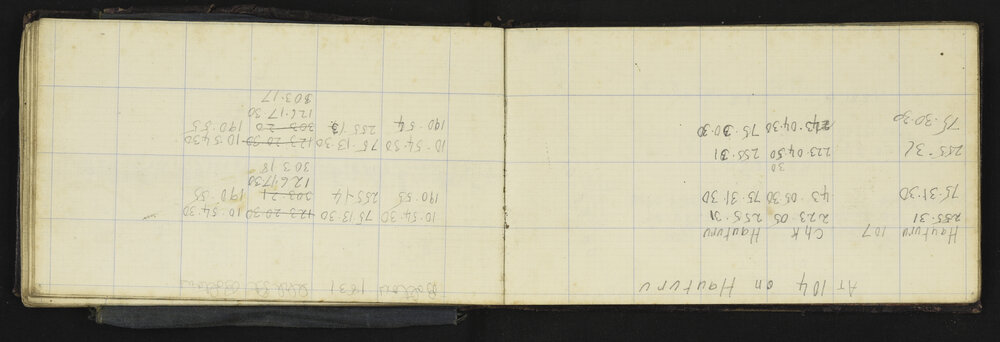 AT 104 on Hauturu
Hauturu 107 Chk Hauturu
255.31 223.05 255.31
75.31.30 43.05.30 75.31.30
30
255.31 223.04.50 255.31
75.30.30 43.04.30 75.30.30
1831
10.54.30 75.13.30 123.20.30 10.54.30
190.55 255.14 303.21 190.55
126.17.30
303 18
10.54.50 75.13.30 123.20.30 10.54.30
190.54 255.13 303.20 190.55
126.17.30
303.17